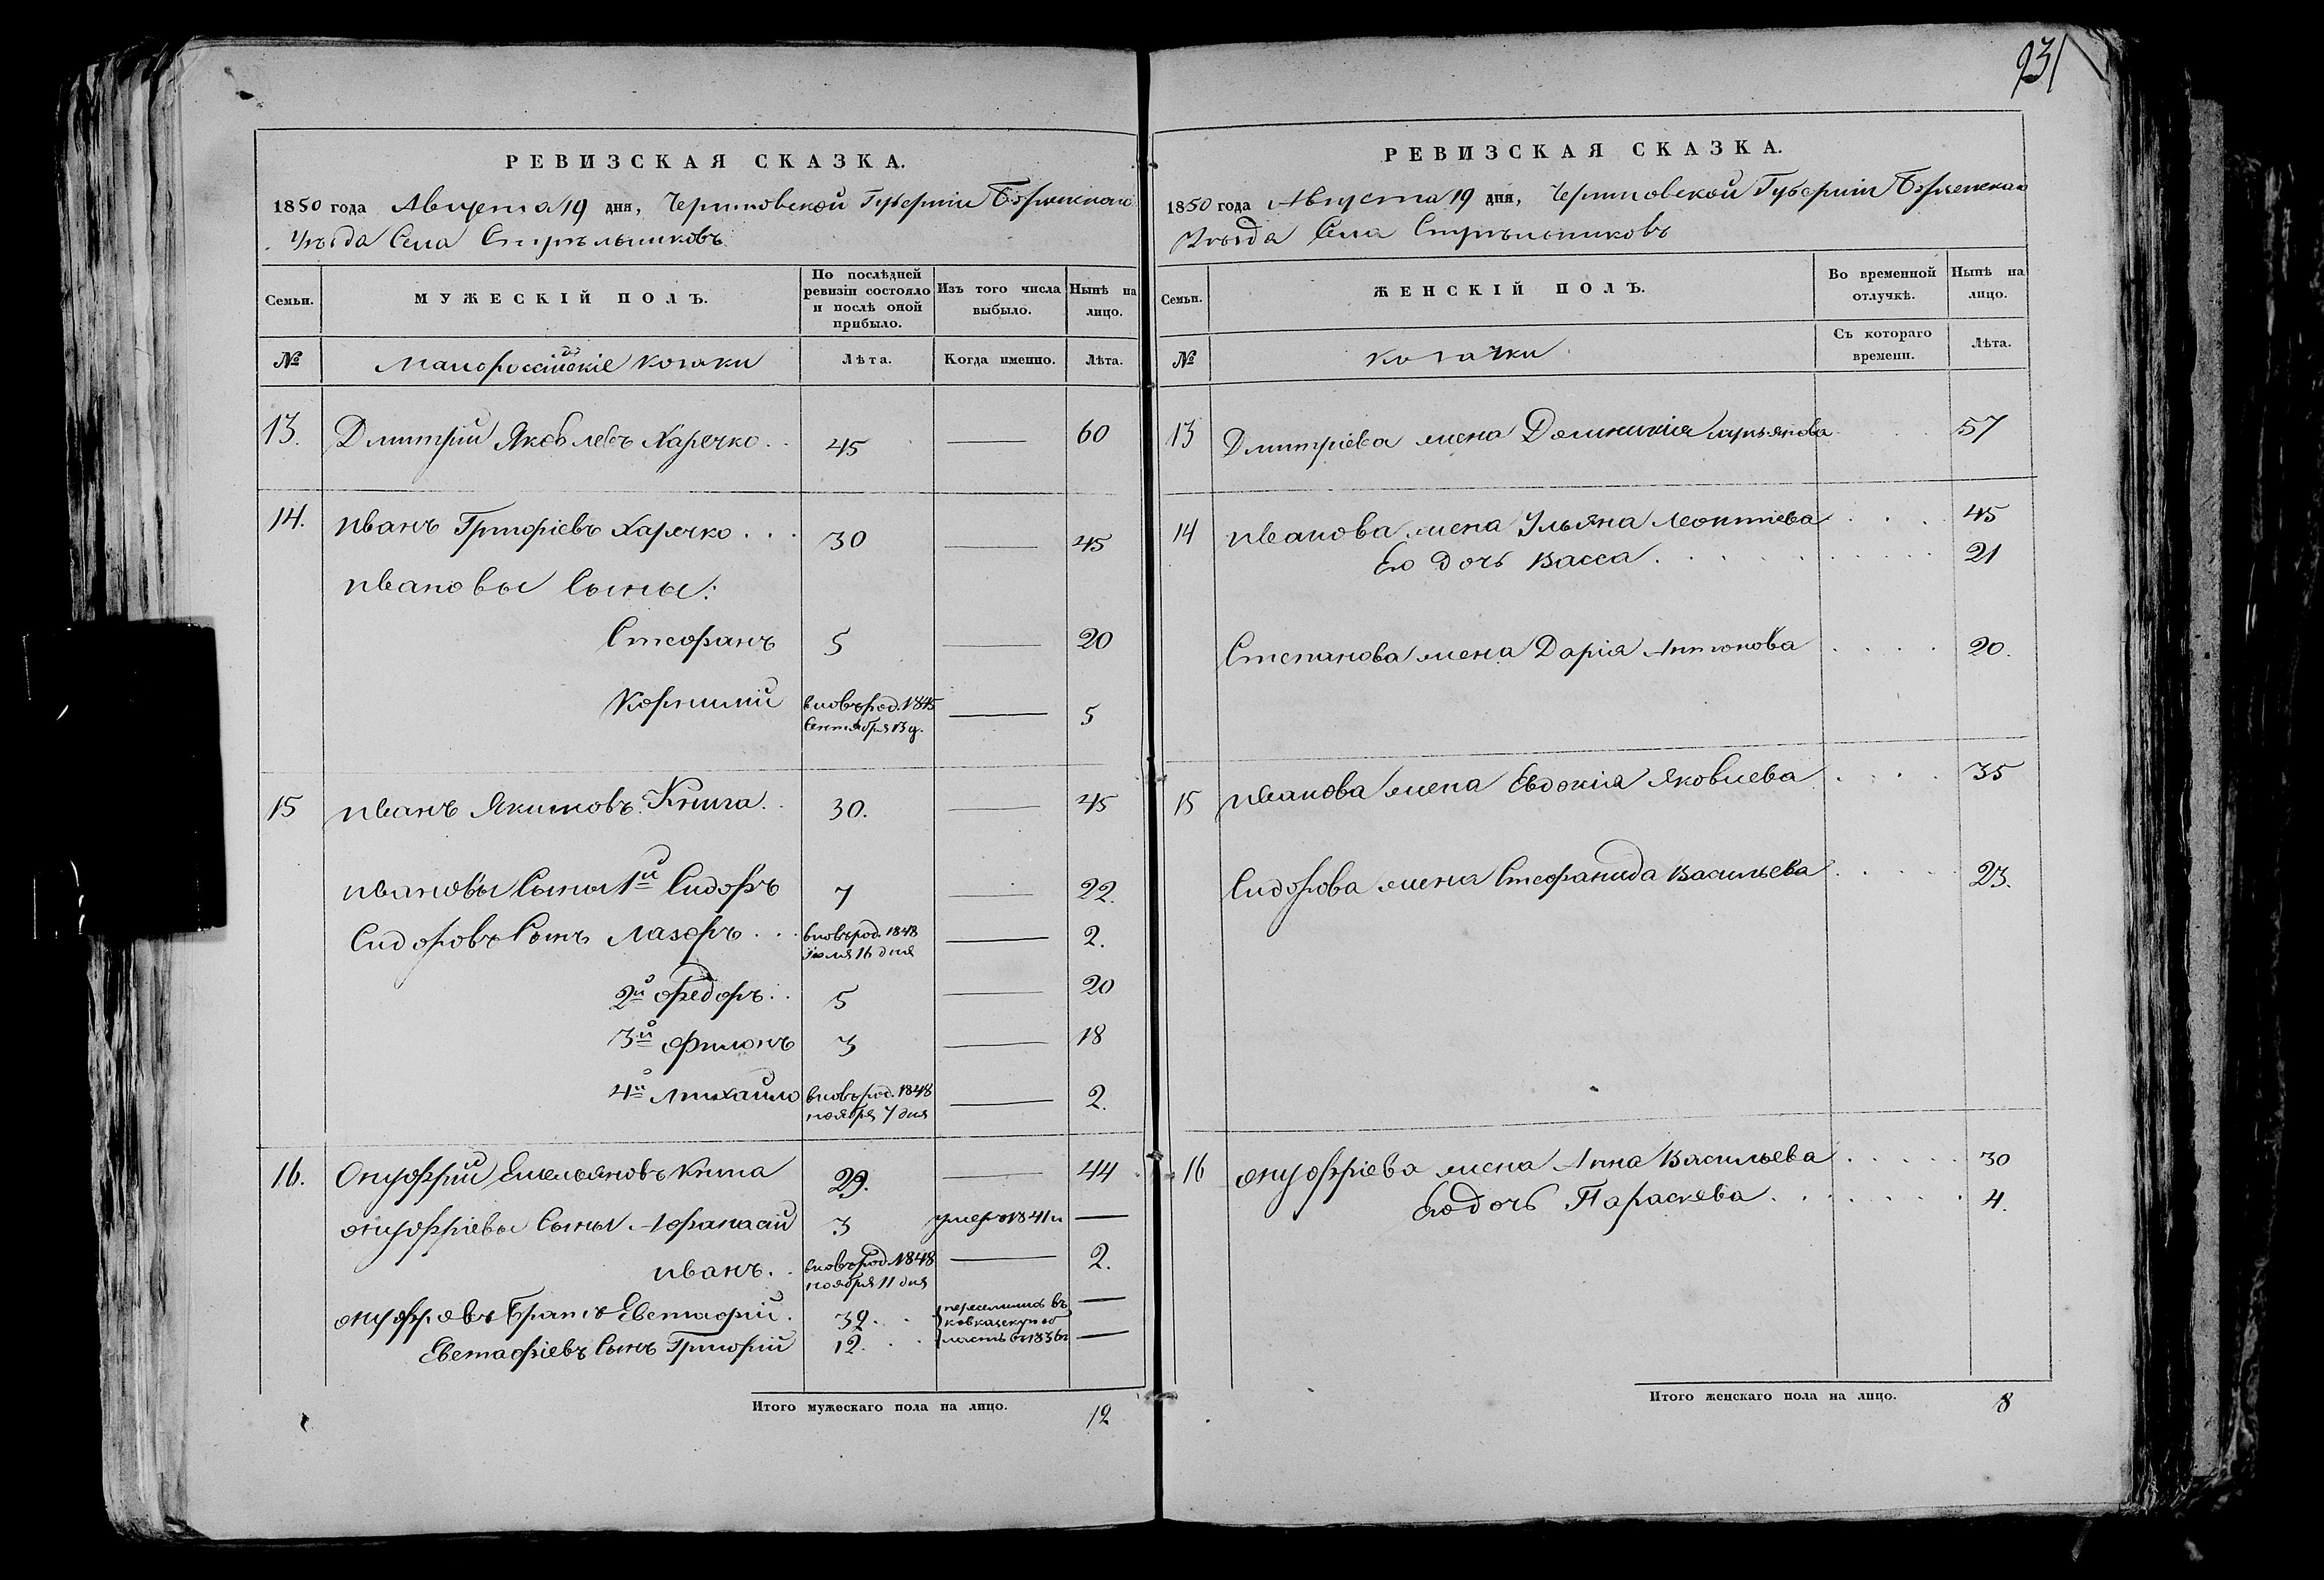 931
РЕВИЗСКАЯ СКАЗКА.
1850 года Августа 19 дня, Черниговской Губерніи Борзенскаго
Уѣзда Села Стрѣльниковъ
Семьи.
МУЖЕСКІЙ ПОЛЪ.
По послѣдней ревизіи состояло и послѣ оной прибыло.
Изъ того числа выбыло.
Нынѣ на лицо.
№
Малороссійскіе козаки
Лѣта.
Когда именно.
Лѣта.
13. Дмитрій Яковлевъ Харечко . . 45 — 60
14. Иванъ Григоріевъ Харечко . . . 30 — 45
Ивановы Сыны:
Стефанъ 5 — 20
Корнилій вновь род. 1845 — 5
Сентября 13 д.
15 Иванъ Якимовъ Книга . . 30. — 45
Ивановы Сыны 1й Сидоръ 7 — 22.
Сидоровъ Сынъ Лазоръ . . . вновь род. 1848 — 2.
Іюля 16 дня
2й Федоръ . . 5 — 20
3й Филонъ 3 — 18
4й Михайло вновь род. 1848 — 2.
ноября 7 дня
16. Онуфрій Емельяновъ Книга 29. — 44
Онуфріевы Сыны Афанасій 3 умеръ 1841 —
Иванъ . . вновь род. 1848 — 2.
ноября 11 дня
Онуфріевъ Братъ Евстафій . 32 . . переселились въ —
Евстафіевъ Сынъ Григорій 12 . . кавказскую об
ласть въ 1836 —
Итого мужескаго пола на лицо. 12
РЕВИЗСКАЯ СКАЗКА.
1850 года Августа 19 дня, Черниговской Губерніи Борзенскаго
Уѣзда Села Стрѣльниковъ
Семьи.
ЖЕНСКІЙ ПОЛЪ.
Во временной отлучкѣ.
Нынѣ на лицо.
№
козачки
Съ котораго времени.
Лѣта.
13 Дмитріева жена Домникія 57
14 Иванова жена Ульяна Леонтіева . . . . 45
Ею дочь Васса . . . . 21
Степанова жена Дарія Антонова . . . . 20.
15 Иванова жена Евдокія Яковлева . . . . 35
Сидорова жена Стефанида Васильева . . . . 23.
16 Онуфріева жена Анна Васильева . . . . . 30
Ею дочь Параскева . . . . . . . 4.
Итого женскаго пола на лицо. 8